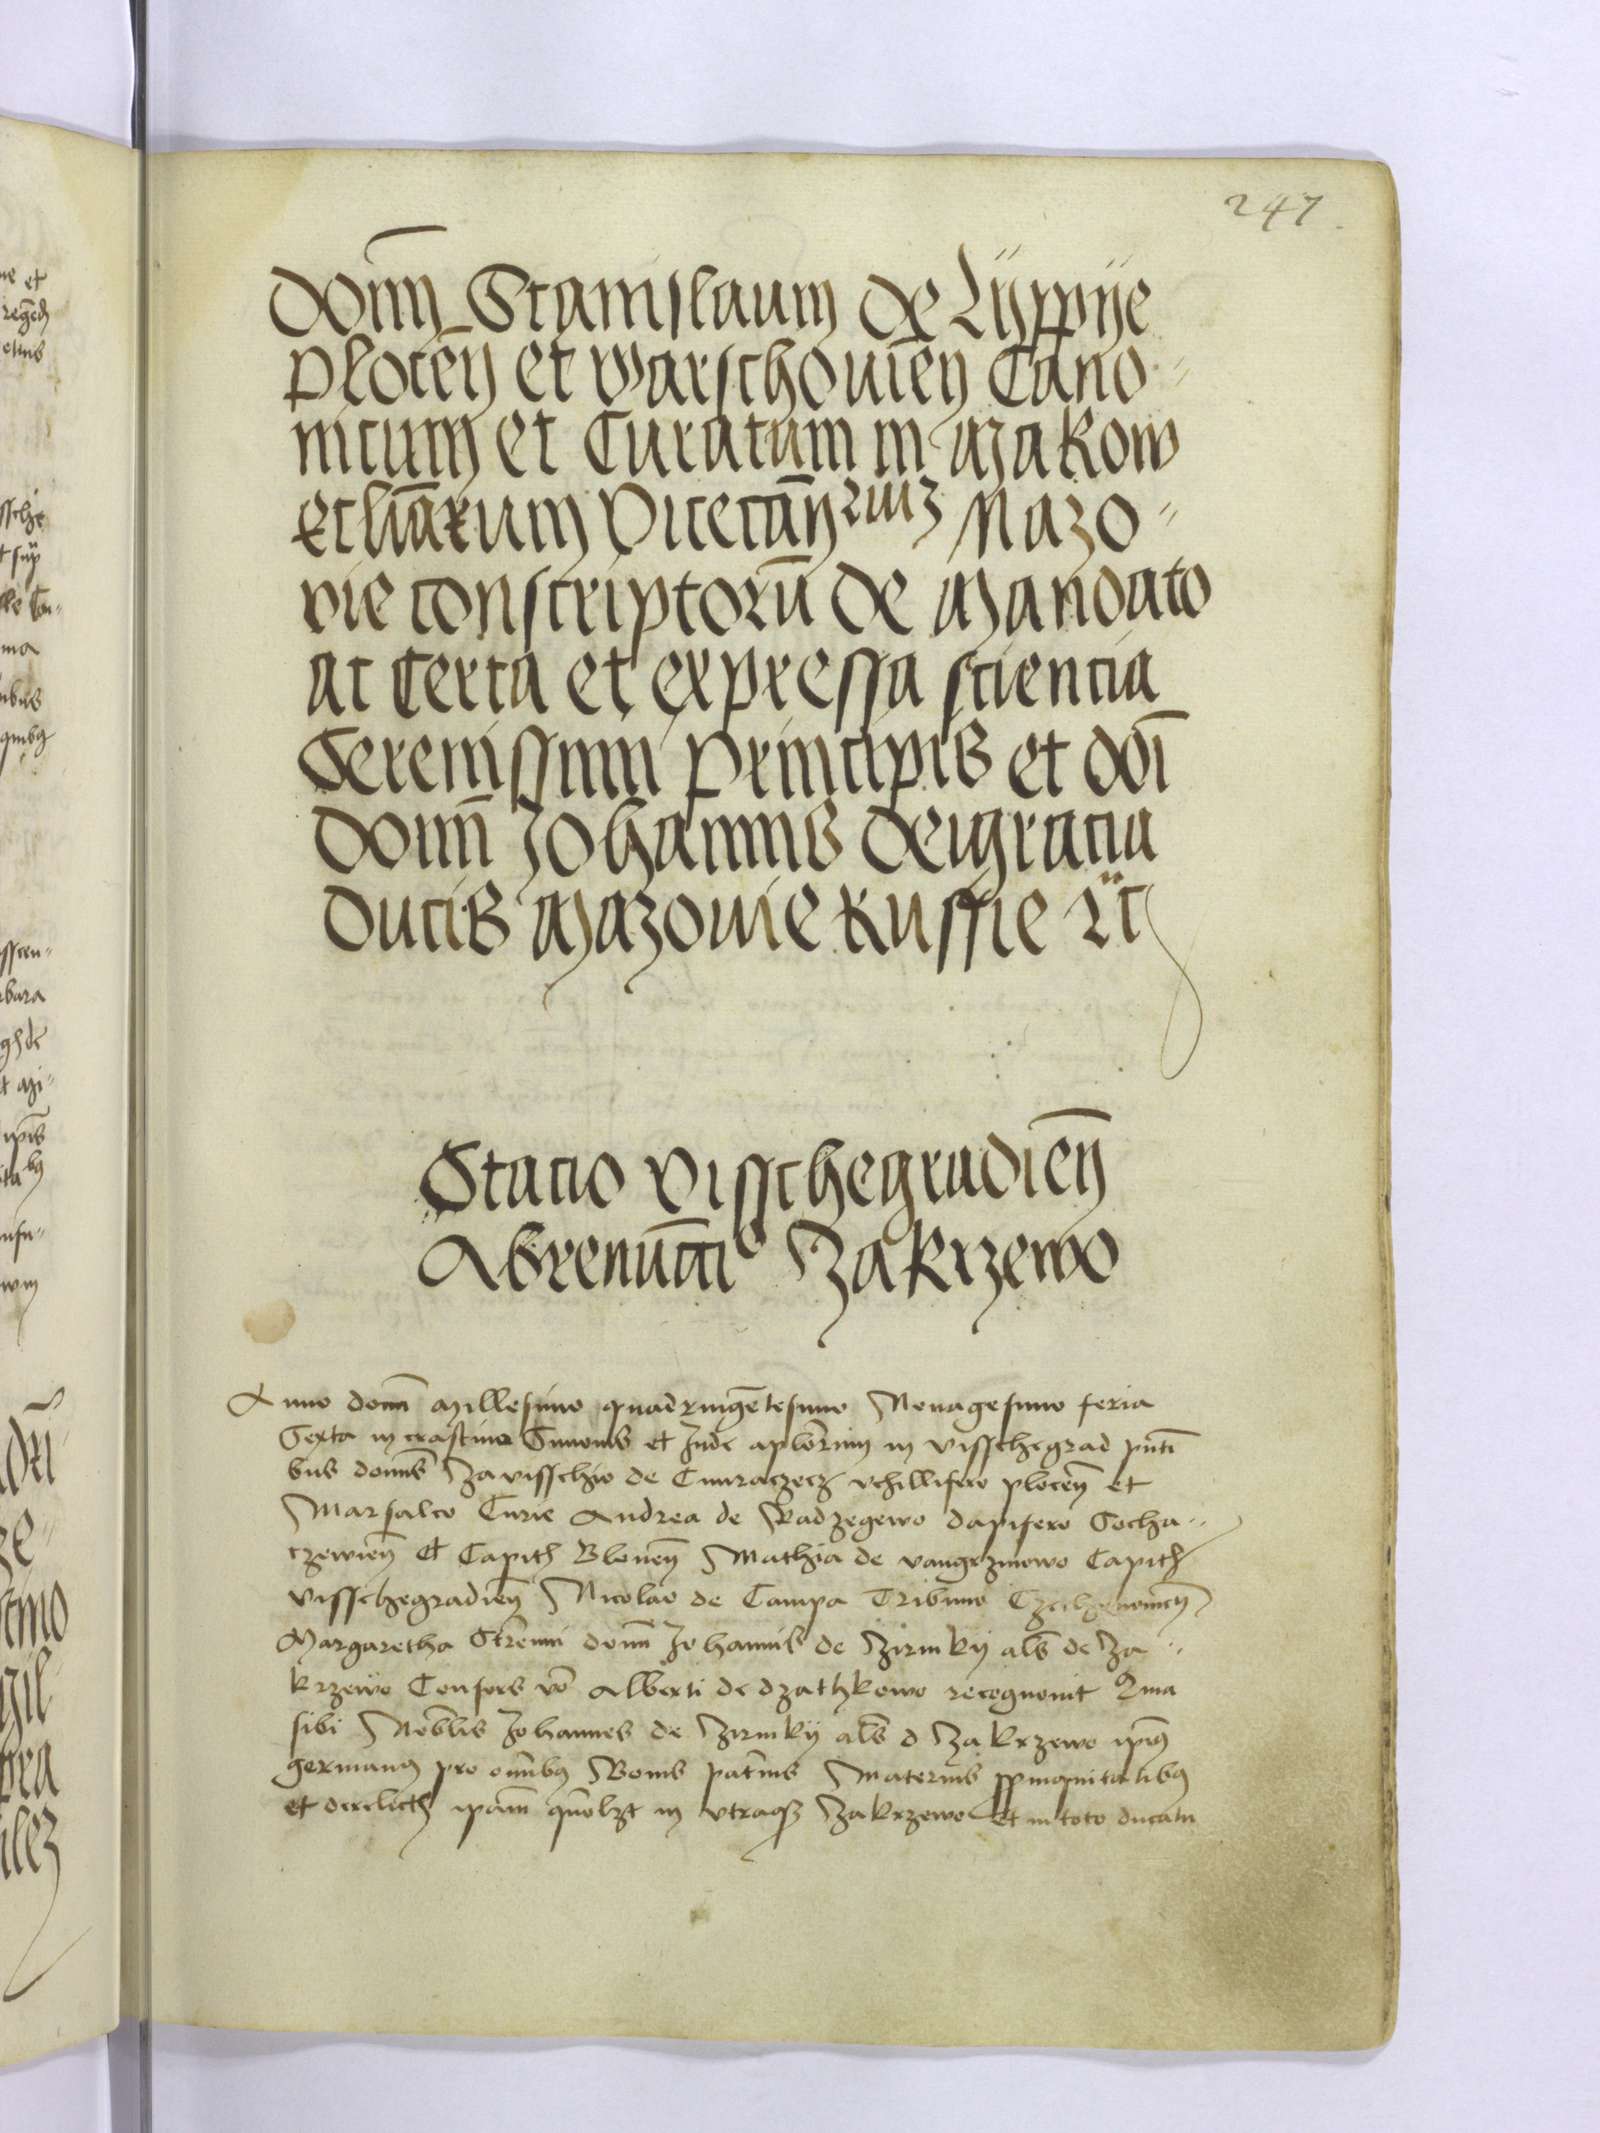 247
domī Stanislaum de Lÿppÿe
plocēn et warschouiēn Cano=
nicum et Curatum in Makow
ac
Mazo=
vie conscriptorū de Mandato
ac Certa et expressa sciencia
Serenissimi principis et dōi
domī Johannis deigracia
ducis Mazouie Russie
Stacio visschegradiēn
Abrenūcciō Zakrzewo
Anno domī Millesimo quadringētesimo Nonagesimo feria
Sexta in crastino Simonis et Jude aplōrum in visschegrad pn̄ti
bus domīs Zavisschio de vexillifero plocēn et
Marsalco Curie Andrea de Radzegewo dapifero Socha=
czewiēn et Capith Blonēn Mathia de Capith
visschegradiēn Nicolao de Campa Tribuno
Margaretha Strēnui domī Johannis de Zirmkÿ als de Za=
krzewo Consors vō Alberti de dzathkowo recognouit Qma
sibi Nobīlis Johannes de Zirmkÿ als d Zakrzewo ipīus
germanus pro omībus Bonis patn̄is Maternis
et derelicth ipam in vtraqz Zakrzewo Et in toto ducatu